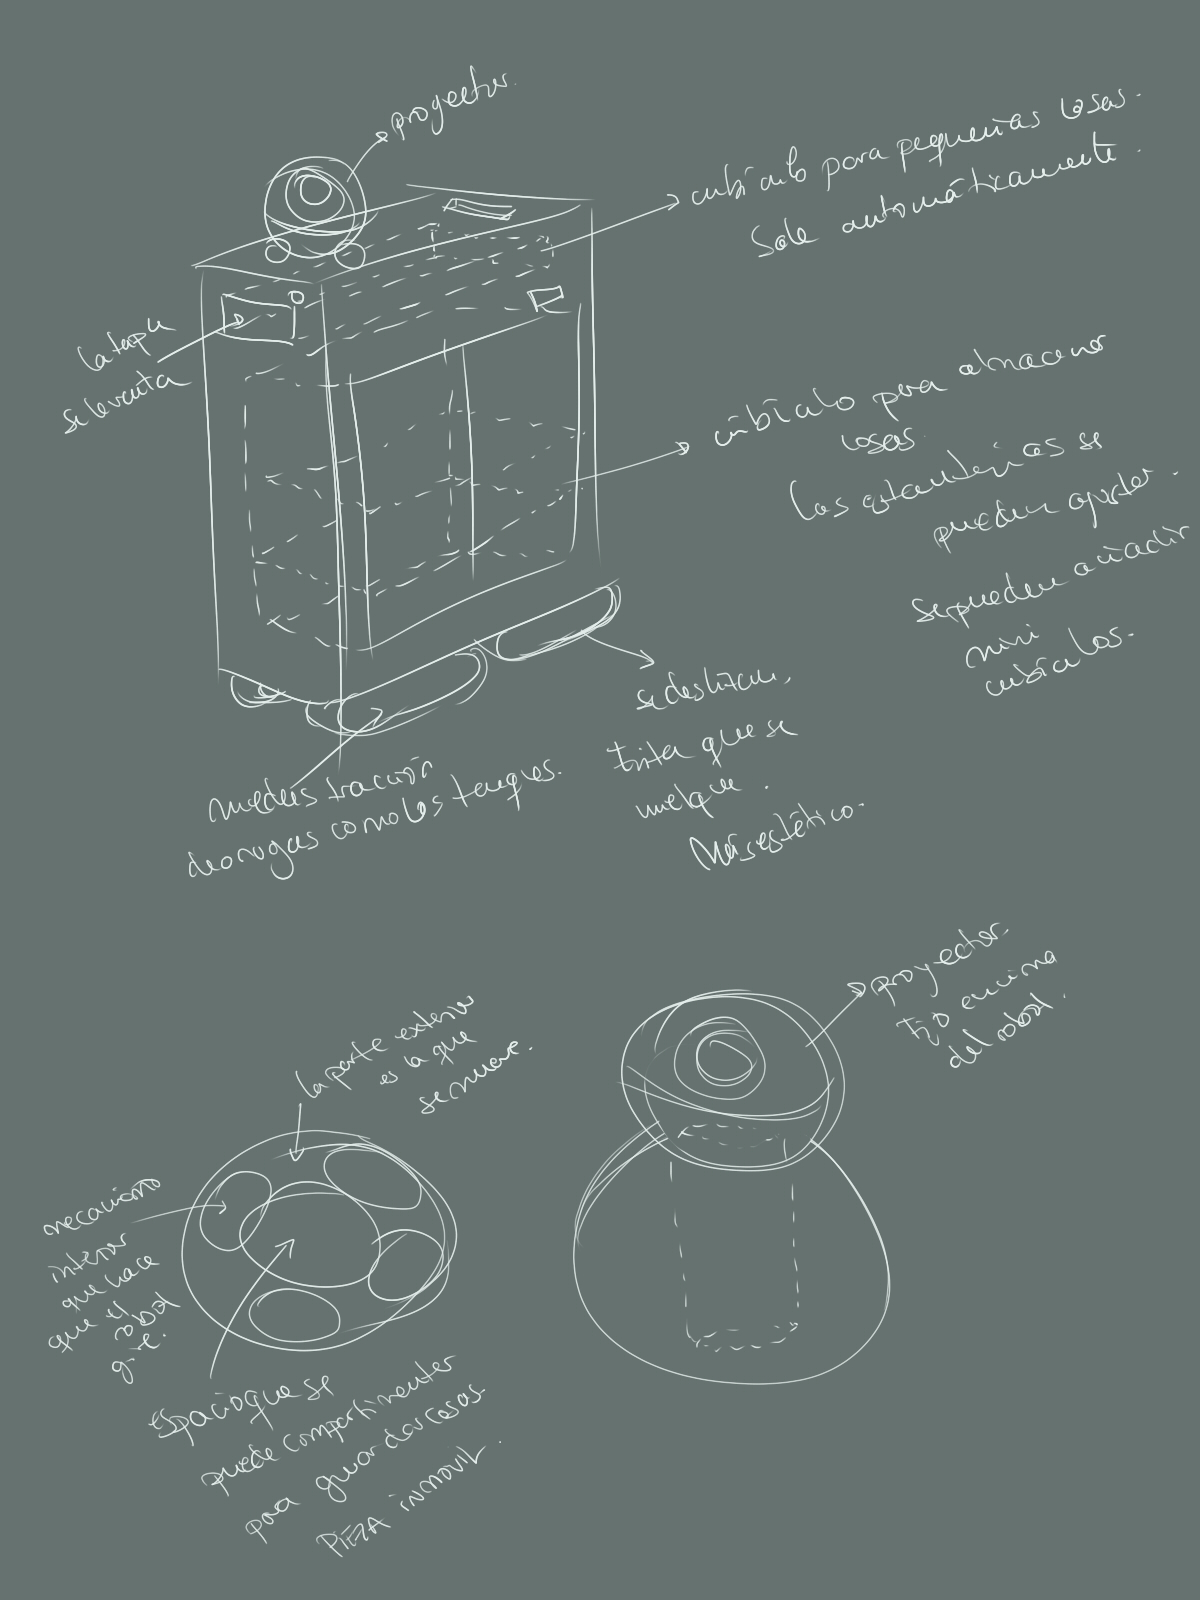 proyector.
cubículo para pequeñas cosas.
Sale automáticamente.
la tapa
se levanta
cubículo para almacenar
cosas.
Las estanterías se
pueden ajustar.
Se pueden añadir
mini
cubículos.
se deslizan,
evita que se
vuelque.
Más estético.
ruedas tracción
de orugas como los tanques.
proyector.
fijo encima
del robot.
la parte exterior
es la que
se mueve.
mecanismo
interior
que hace
que el
robot
gire.
Espacio que se
puede compartimentar
para guardar cosas.
PIEZA INMOVIL.